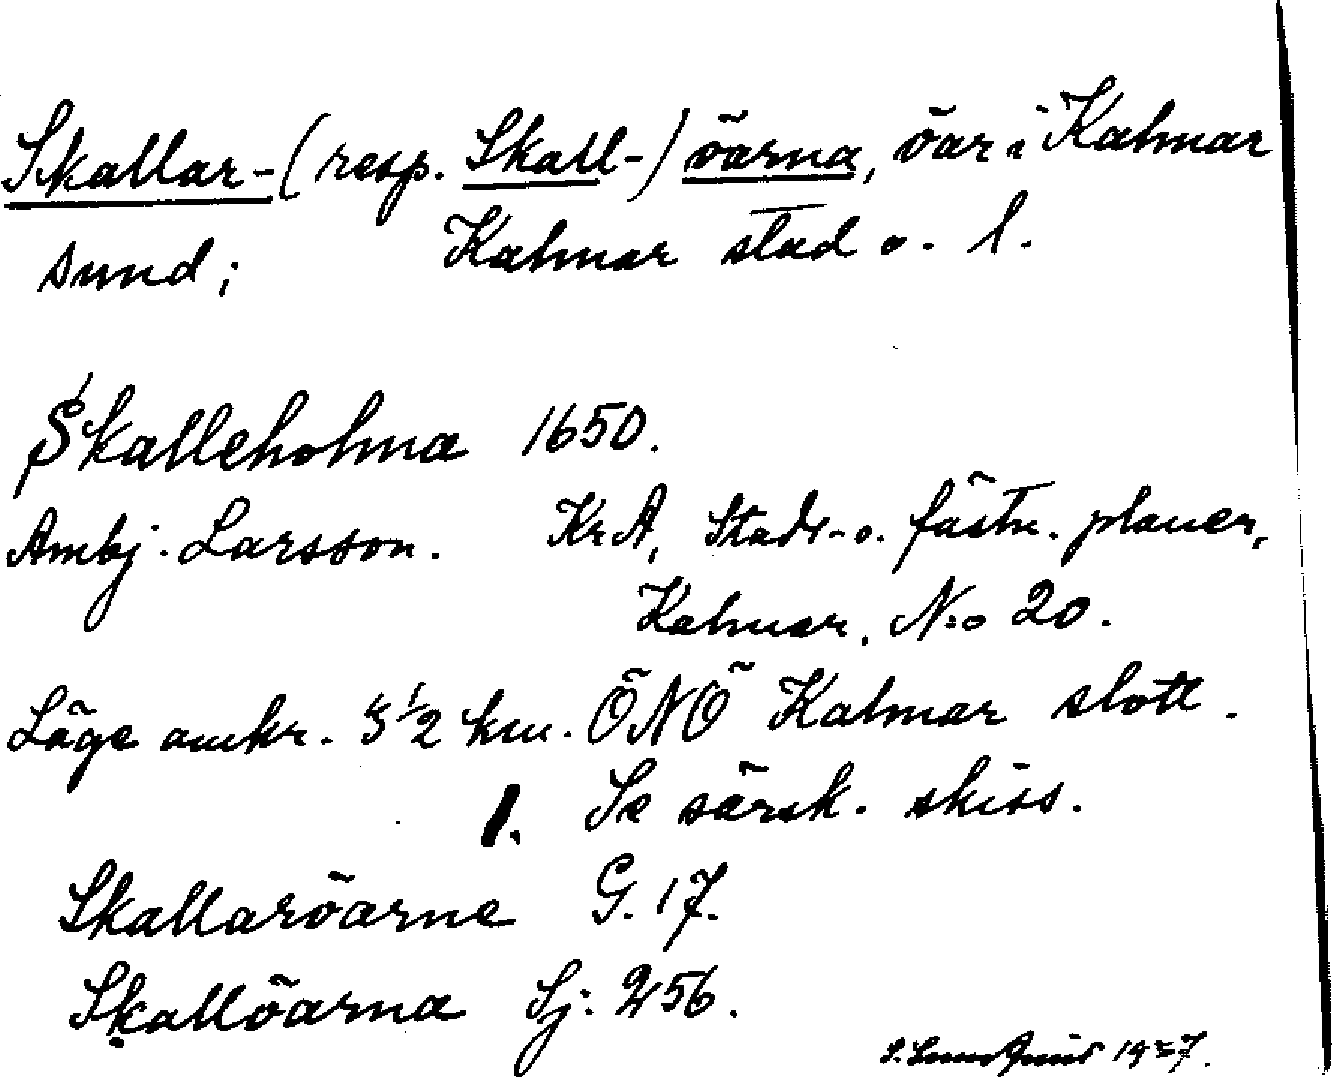 Skallar-(resp. Skall-) öarna, öar i Kalmar
sund; Kalmar stad o. l.
Skalleholma 1650.
Ambj. Larsson. KrA, Stads- o. fästn. planer,
Kalmar, N:o 20.
Läge omkr. 3 1/2 km. ÖNÖ Kalmar slott.
1. Se särsk. skiss.
Skallaröarne G. 17.
Skallöarna Sj. 256.
1927.